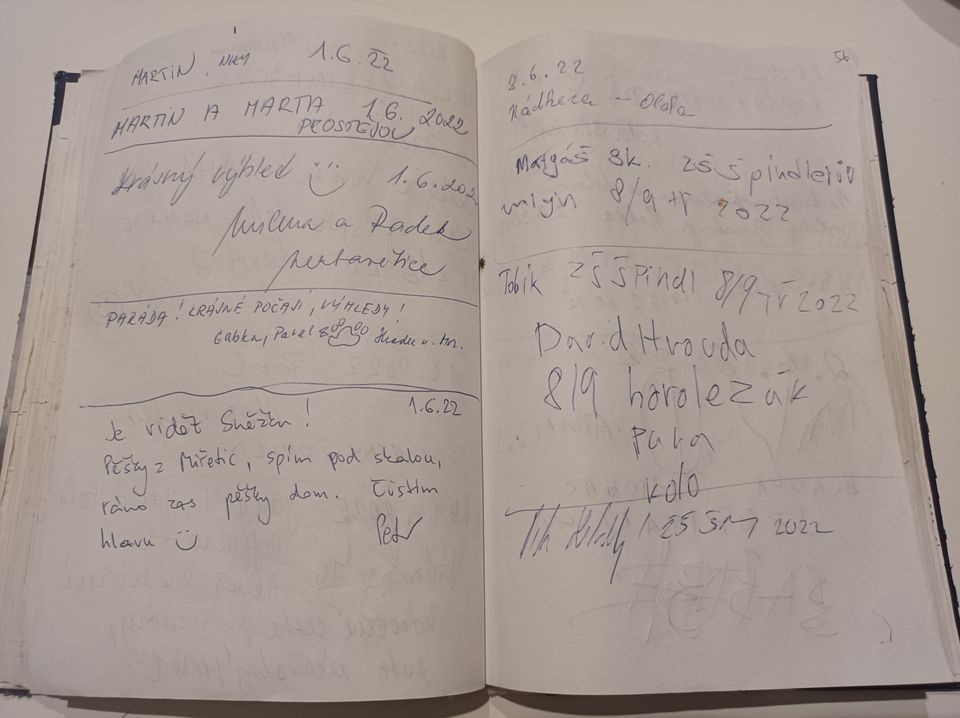 MARTIN, NKY 1.6.22
MARTIN A MARTA 1.6.2022
PROSTĚJOV
Krásný výhled 1.6.202
Milena a Radek
PARÁDA! KRÁSNÉ POČASÍ, VÝHLEDY!
Gabka, Pavel & Hradec n. Mor.
1.6.22
Je vidět Sněžku!
Pěšky z Miřetic, spím pod skalou,
ráno zas pěšky dom. Čistím
hlavu Petr
56
2.6.22
Nádhera - Olda
Matyáš 8k. ZŠ Špindlerův
mlýn 8/9 tř 2022
Tobik ZŠ Špindl 8/9 tř 2022
David Hrouda
8/9 horolezák
Para
kolo
2022